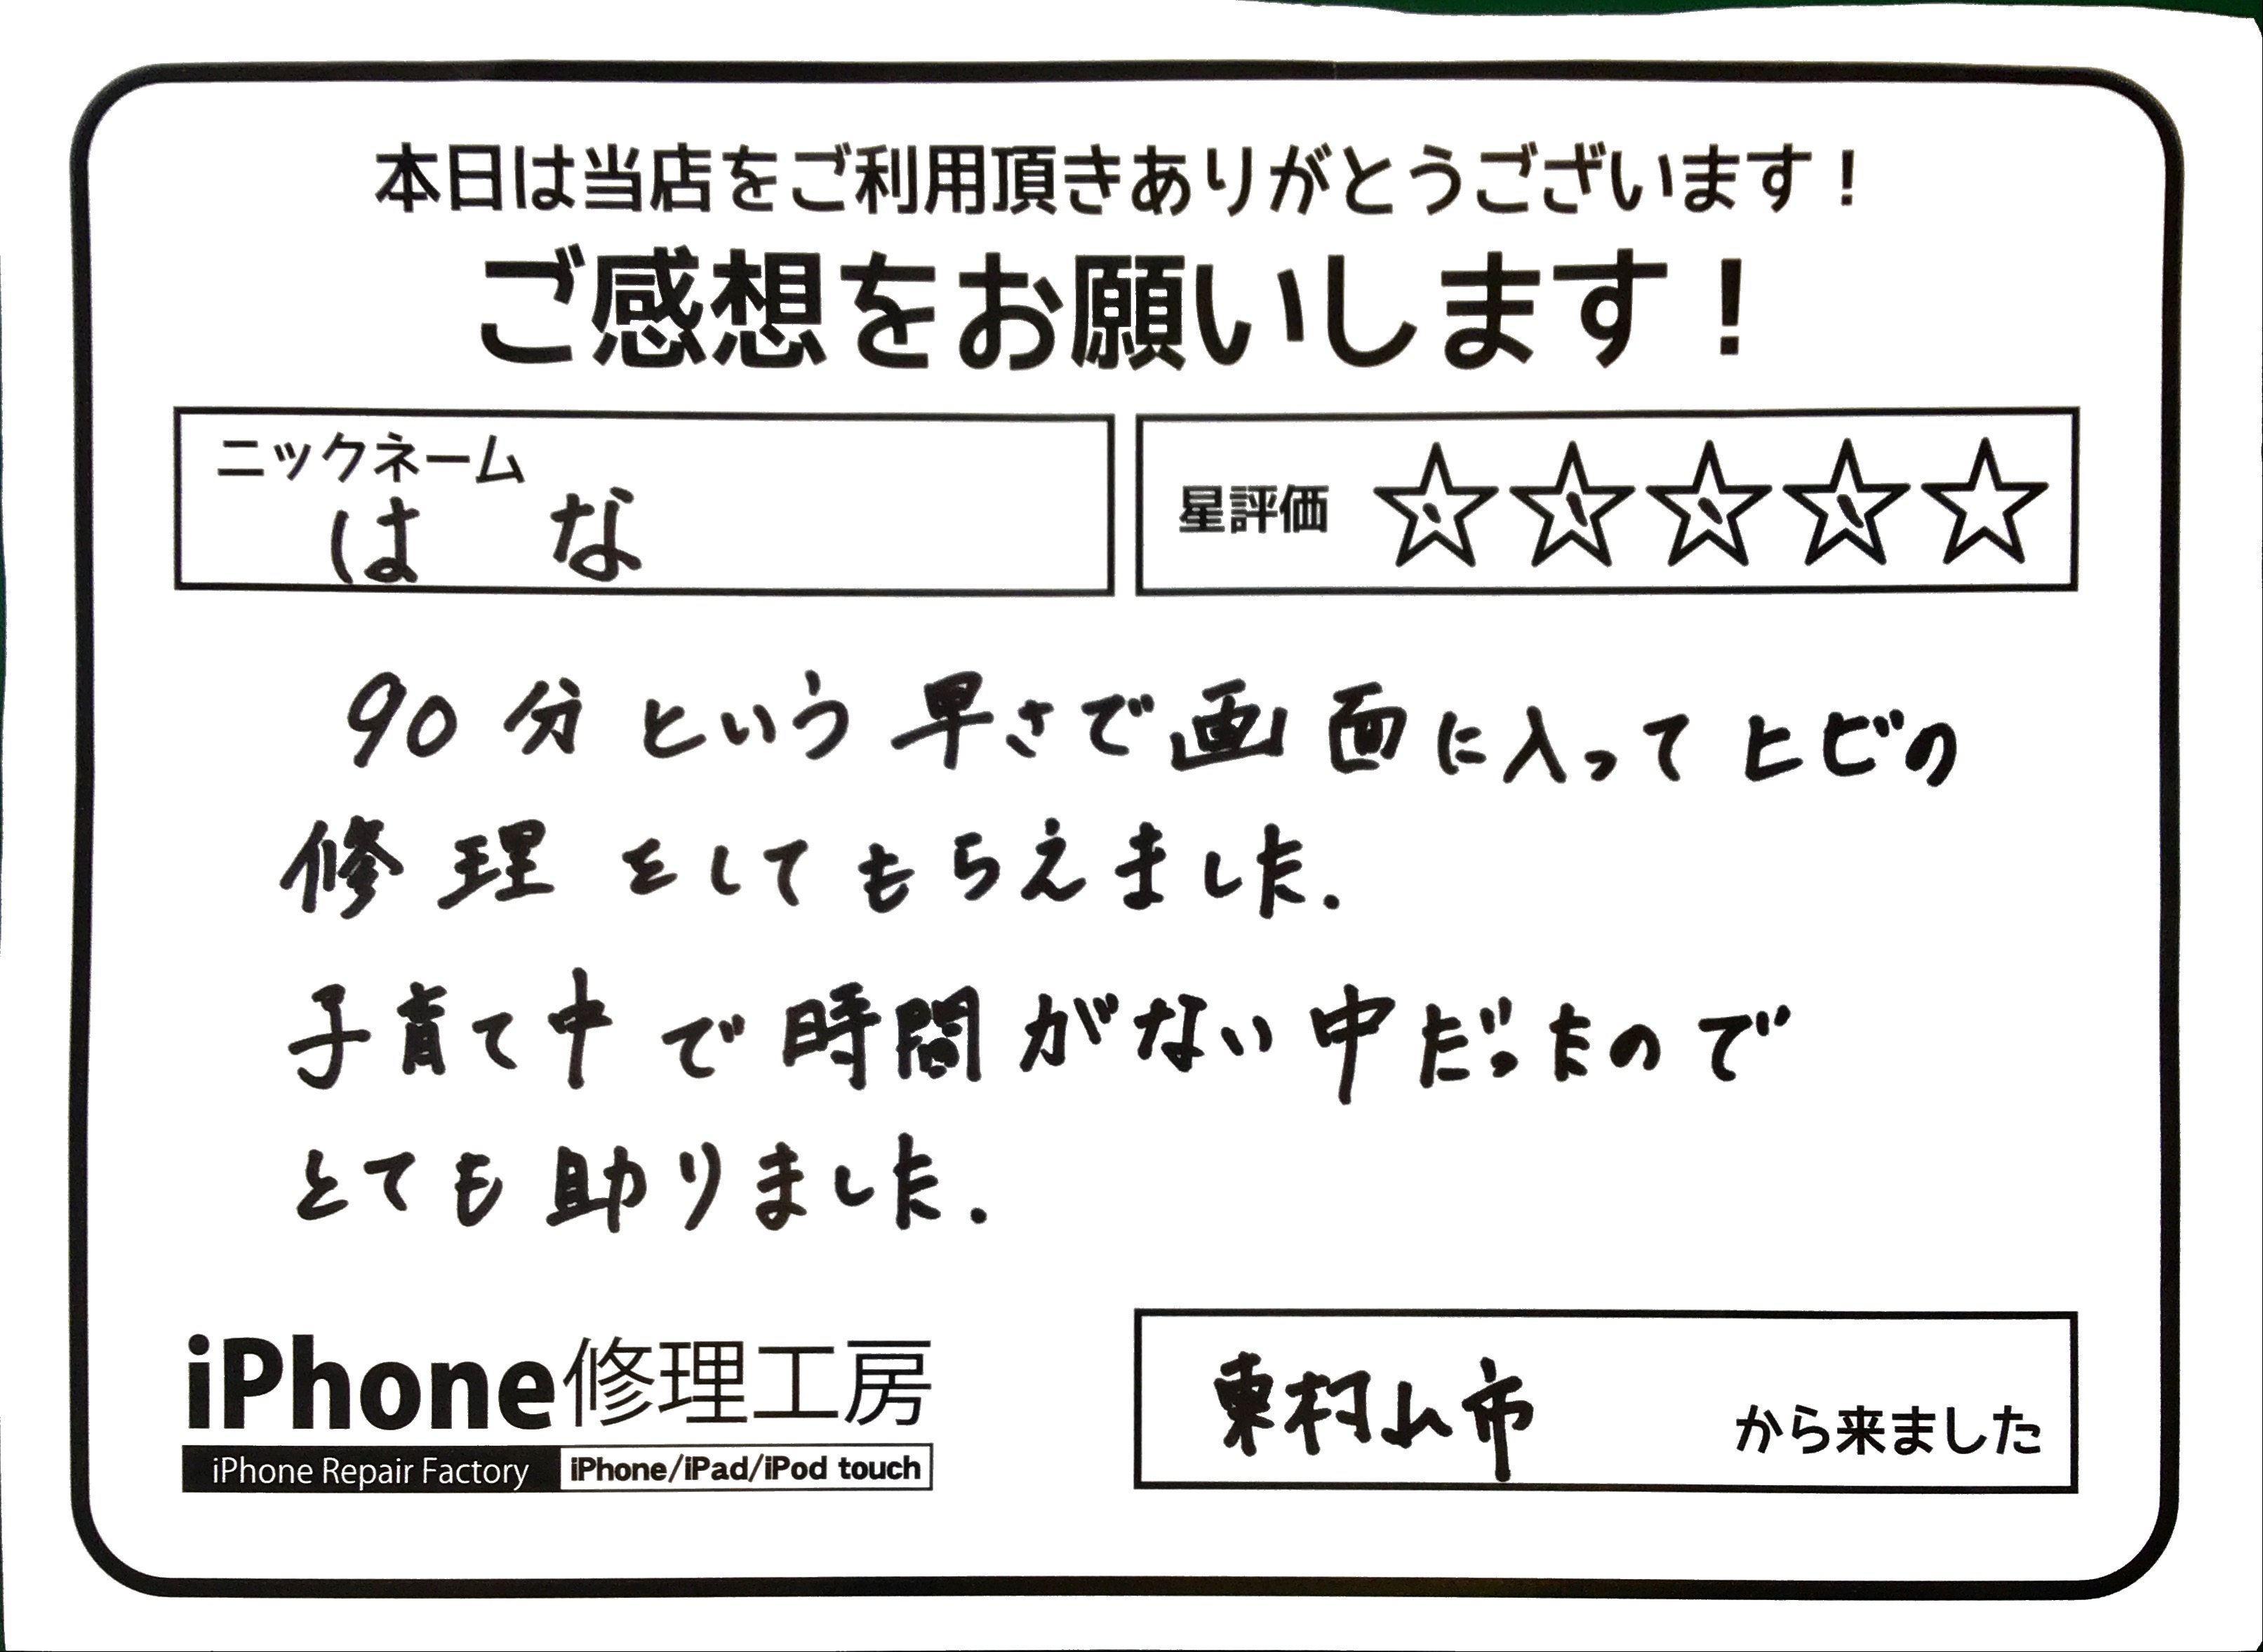 本日は当店をご利用頂きありがとうございます！
ご感想をお願いします！
ニックネーム
はな
星評価 ☆☆☆☆☆
90分という早さで画面に入ってヒビの
修理をしてもらえました.
子育て中で時間がない中だったので
とても助りました.
iPhone修理工房
iPhone Repair Factory iPhone/iPad/iPod touch
東村山市 から来ました